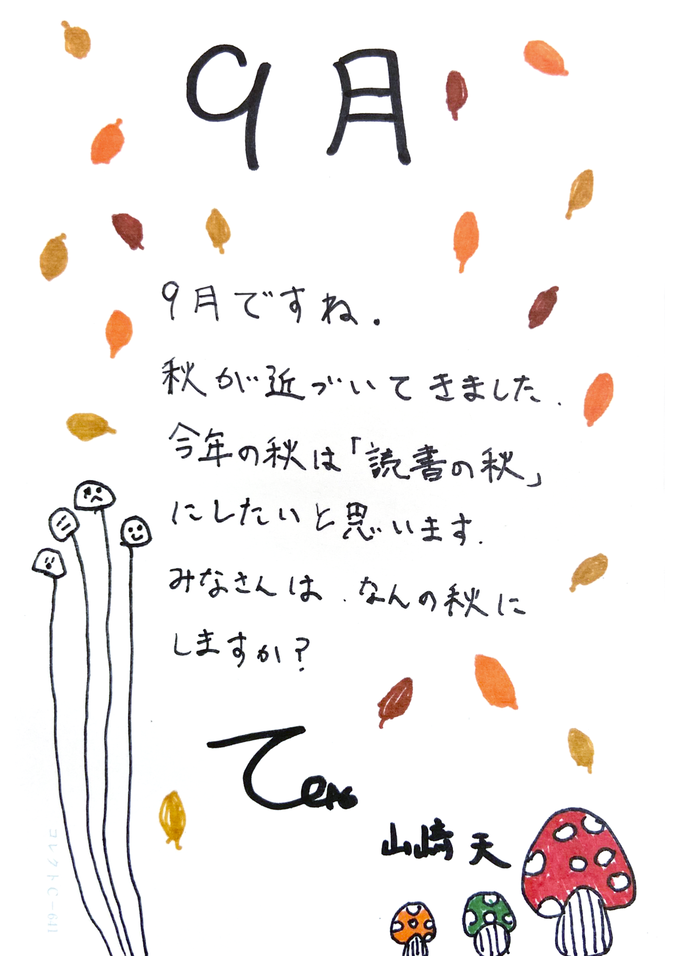 9月
9月ですね.
秋が近づいてきました.
今年の秋は「読書の秋」
にしたいと思います.
みなさんは.なんの秋に
しますか?
山﨑 天